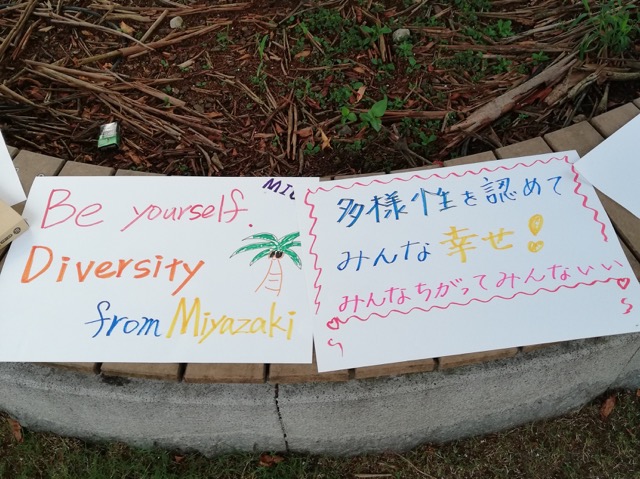 Be yourself.
Diversity
from Miyazaki
多様性を認めて
みんな幸せ!
みんなちがってみんないい